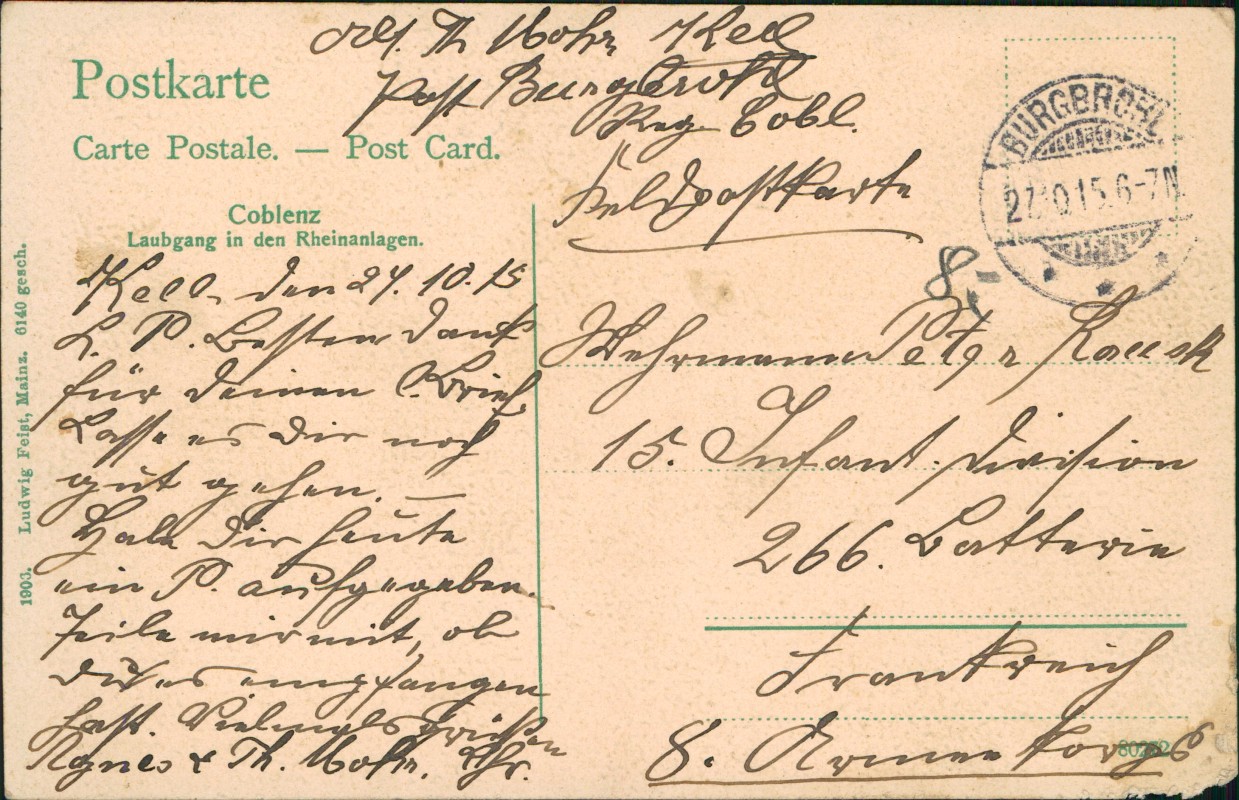 Abs. Th Mohr Kell
Post Burgbrohl
Reg Cobl.
Postkarte
Carte Postale. — Post Card.
Feldpostkarte
BURGBROHL
27.10.15.6-7N
8,-
Coblenz
Laubgang in den Rheinanlagen.
Kell, den 27. 10. 15
L. P. Besten Dank
für deinen Brief.
Lasse es dir noch
gut gehen. —
Habe dir heute
ein P. aufgegeben.
Teile mir mit, ob
du es empfangen
hast. Vielmals grüßen
Agnes & Th. Mohr. Lhr.
Wehrmann Peter
15. Infant. Division
266. Batterie
Frankreich
8. Armee Korps
1903. Ludwig Feist, Mainz. 6140 gesch.